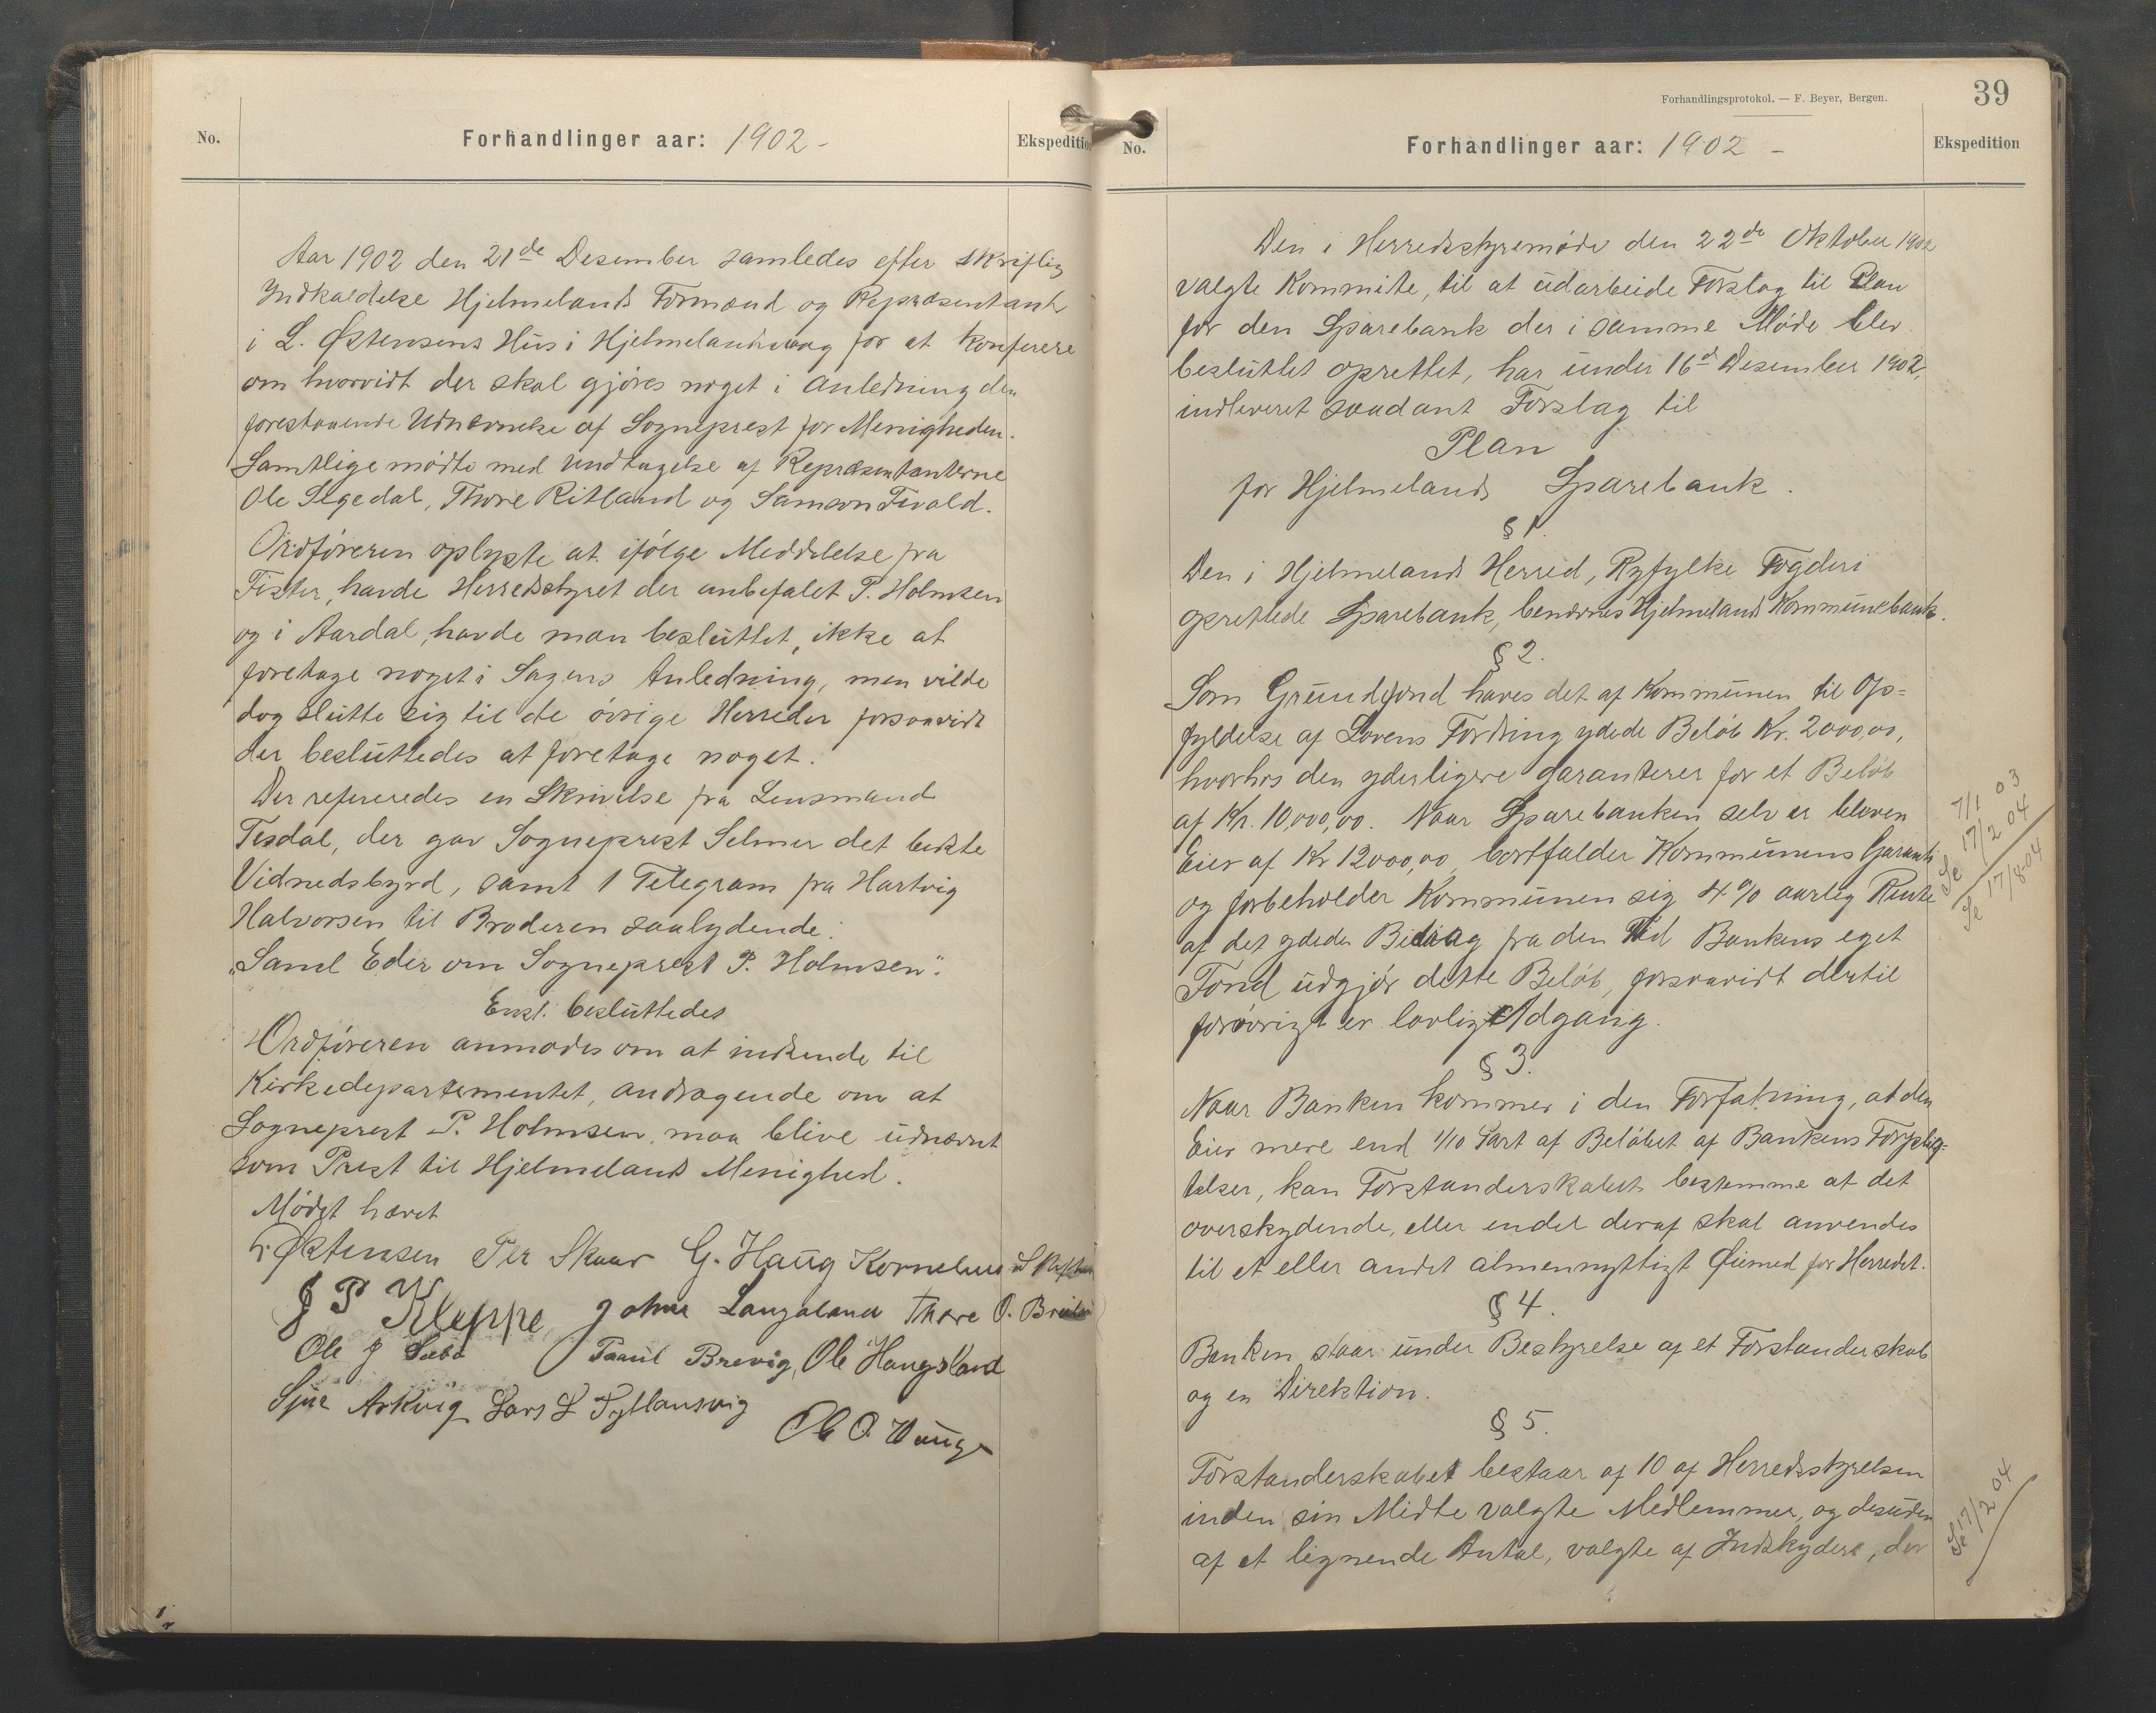 No.
Forhandlinger aar: 1902 -
Ekspedition
Aar 1902 den 21de Desember samledes efter skriftlig
Indkaldelse Hjelmelands Formænd og Repræsentant
i L. Østensens Hus i Hjelmelandsvaag for at konferere
om hvorvidt der skal gjøres noget i Anledning den
forestaaende Udnævnelse af Sogneprest for Menigheden.
Samtlige mødte med Undtagelse af Repræsentanterne
Ole Segedal, Thore Ritland og Samson Tivold.
Ordføreren oplyste at ifølge Meddelelse fra
Fister, havde Herredsstyret der anbefalet P. Holmsen
og i Aardal, havde man besluttet, ikke at
foretage noget i Sagens Anledning, men vilde
dog slutte sig til de øvrige Herreder forsaavidt
der besluttedes at foretage noget.
Der refereredes en Skrivelse fra Lensmand
Tesdal, der gav Sogneprest Selmer det bedste
Vidnedsbyrd, samt 1 Telegram fra Hartvig
Halvorsen til Broderen saalydende:
"Saml Eder om Sogneprest P. Holmsen".
Enst. besluttedes
Ordføreren anmodes om at indsende til
Kirkedepartementet, andragende om at
Sogneprest P. Holmsen, maa blive udnævnt
som Prest til Hjelmelands Menighed.
Mødet hævet
L. Østensen Per Skaar G. Haug Kornelius
J P Kleppe John Langeland Thore O.
Ole J Sæbø Paaul Brevig, Ole Haugsland
Sjur Arkvig Lars L Fyllansvig
Ole O. Hauge
Forhandlingsprotokol. — F. Beyer, Bergen.
39
No.
Forhandlinger aar: 1902 -
Ekspedition
Den i Herredsstyremøde den 22de Oktober 1902
valgte Kommite, til at udarbeide Forslag til Plan
for den Sparebank der i samme Møde blev
besluttet oprettet, har under 16de Desember 1902,
indleveret saadant Forslag til
Plan
for Hjelmelands Sparebank.
§ 1.
Den i Hjelmelands Herred, Ryfylke Fogderi
oprettede Sparebank, benævnes Hjelmelands Kommunebank.
§ 2.
Som Grundfond haves det af Kommunen til Op=
fyldelse af Lovens Fordring ydede Beløb Kr. 2000,00,
hvorhos den yderligere garanterer for et Beløb
af Kr. 10,000,00. Naar Sparebanken selv er bleven
Eier af Kr 12000,00 bortfalder Kommunens Garanti
og forbeholder Kommunen sig 4 % aarlig Rente
af det ydede Bidrag fra den Tid Bankens eget
Fond udgjør dette Beløb, forsaavidt dertil
forøvrigt er lovlig Adgang.
7/1 03
Se 17/2 04
Se 17/8-04
§ 3.
Naar Banken kommer i den Forfatning, at den
Eier mere end 1/10 Part af Beløbet af Bankens Forplig-
telser, kan Forstanderskabet bestemme at det
overskydende, eller endel deraf skal anvendes
til et eller andet almennyttigt Øiemed for Herredet.
§ 4.
Banken staar under Bestyrelse af et Forstanderskab
og en Direktion.
§ 5.
Forstanderskabet bestaar af 10 af Herredsstyrelsen
inden sin Midte valgte Medlemmer, og desuden
af et lignende Antal, valgte af Indskydere, der
Se 17/2 04